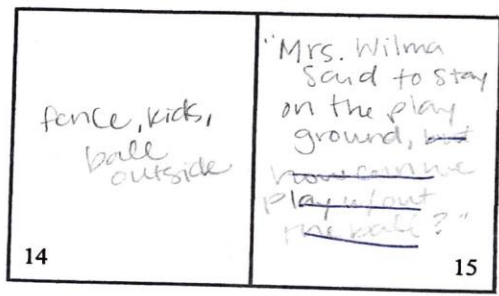 fence, kids,
ball
outside
14
"Mrs. Wilma
said to stay
on the play
ground, but
how can we
play w/out
the ball?"
15